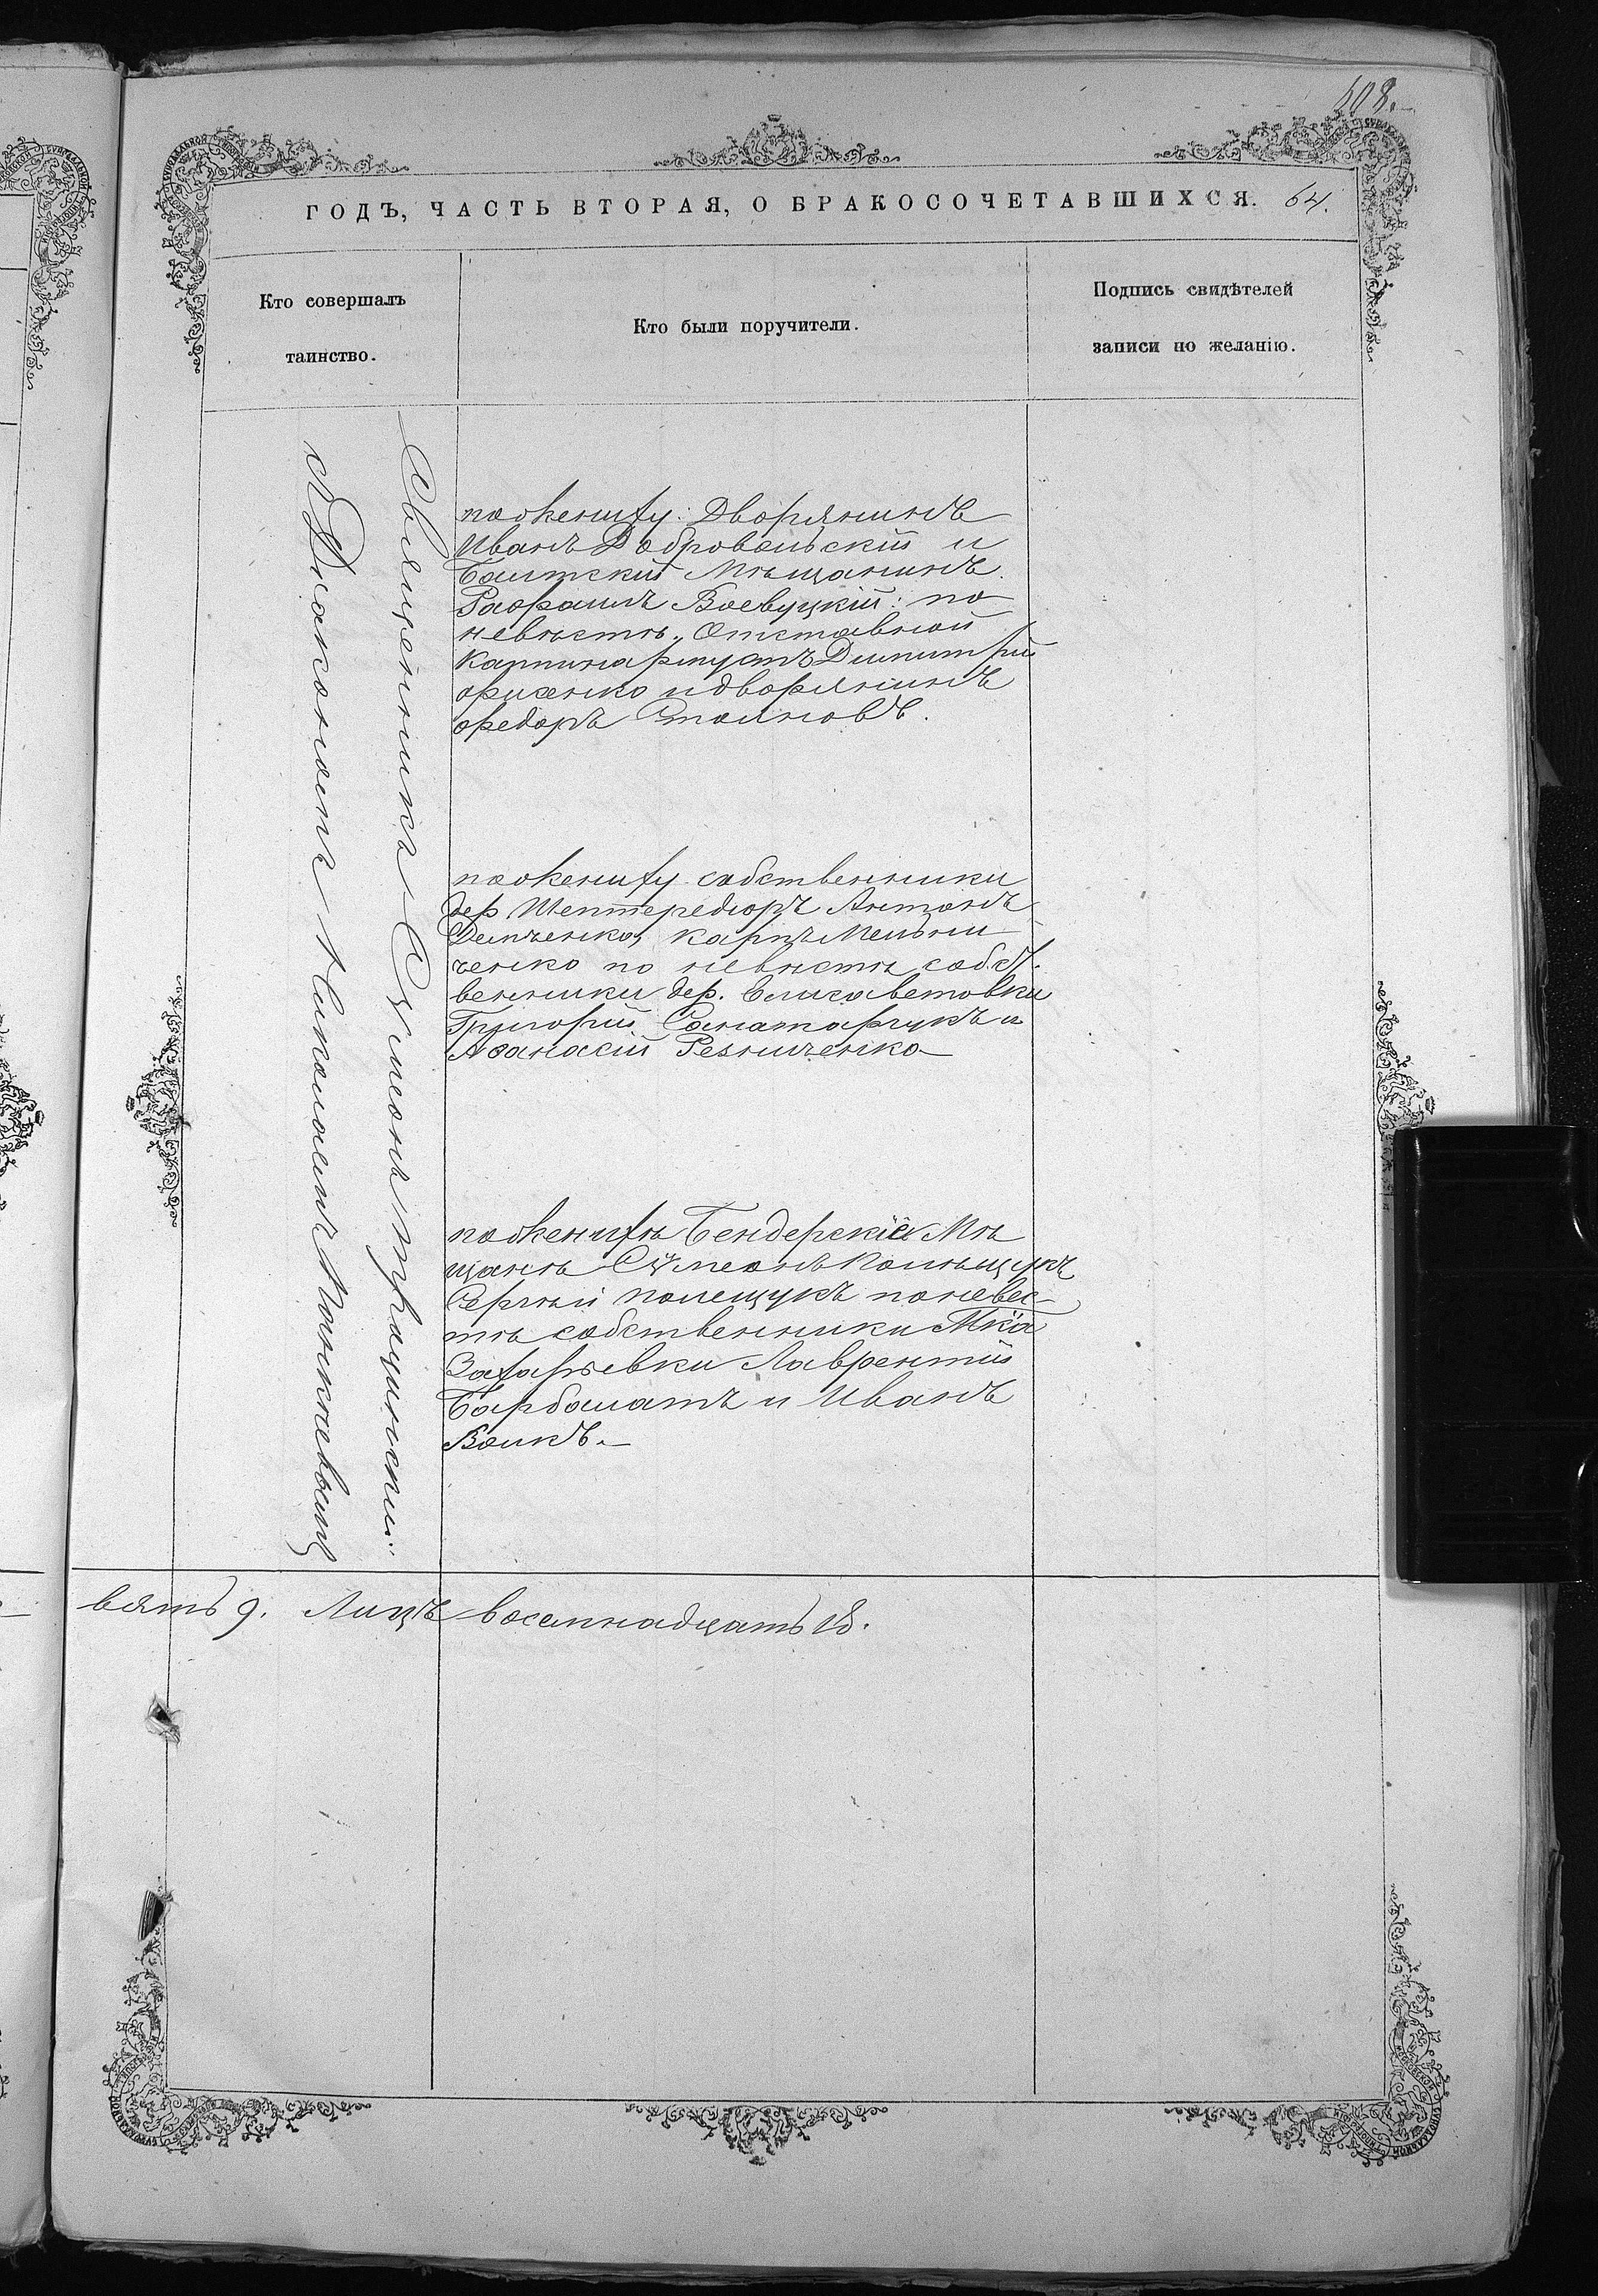 408.
ГОДЪ, ЧАСТЬ ВТОРАЯ, О БРАКОСОЧЕТАВШИХСЯ. 64.
Кто совершалъ
таинство.
Кто были поручители.
Подпись свидѣтелей
записи по желанію.
Священникъ Сѵмеонъ
съ Діакономъ Николаемъ
по жениху: Дворянинъ
Иванъ Добровольскій и
Балтскій Мѣщанинъ
Рафаилъ Воевуцкій: по
невѣстѣ, Отставной
Каптинармусъ Димитрій
и дворянинъ
Ѳедоръ Стояновъ.
по жениху собственники
дер. Шептередюръ Антонъ
Демченко, Карпъ Мельни
ченко по невѣстѣ собст.
венники дер. Елисаветовки
Григорій Санатарчукъ и
Аѳанасій Резниченко
по женихѣ Бендерскіе Мѣ
щане Сѵмеонъ Полѣщукъ
Сергѣй Полещукъ по невес-
тѣ собственники М-ка
Захарьевки Лаврентій
Барбалатъ и Иванъ
Волкъ.—
вять 9. Лицъ восемнадцать 18.